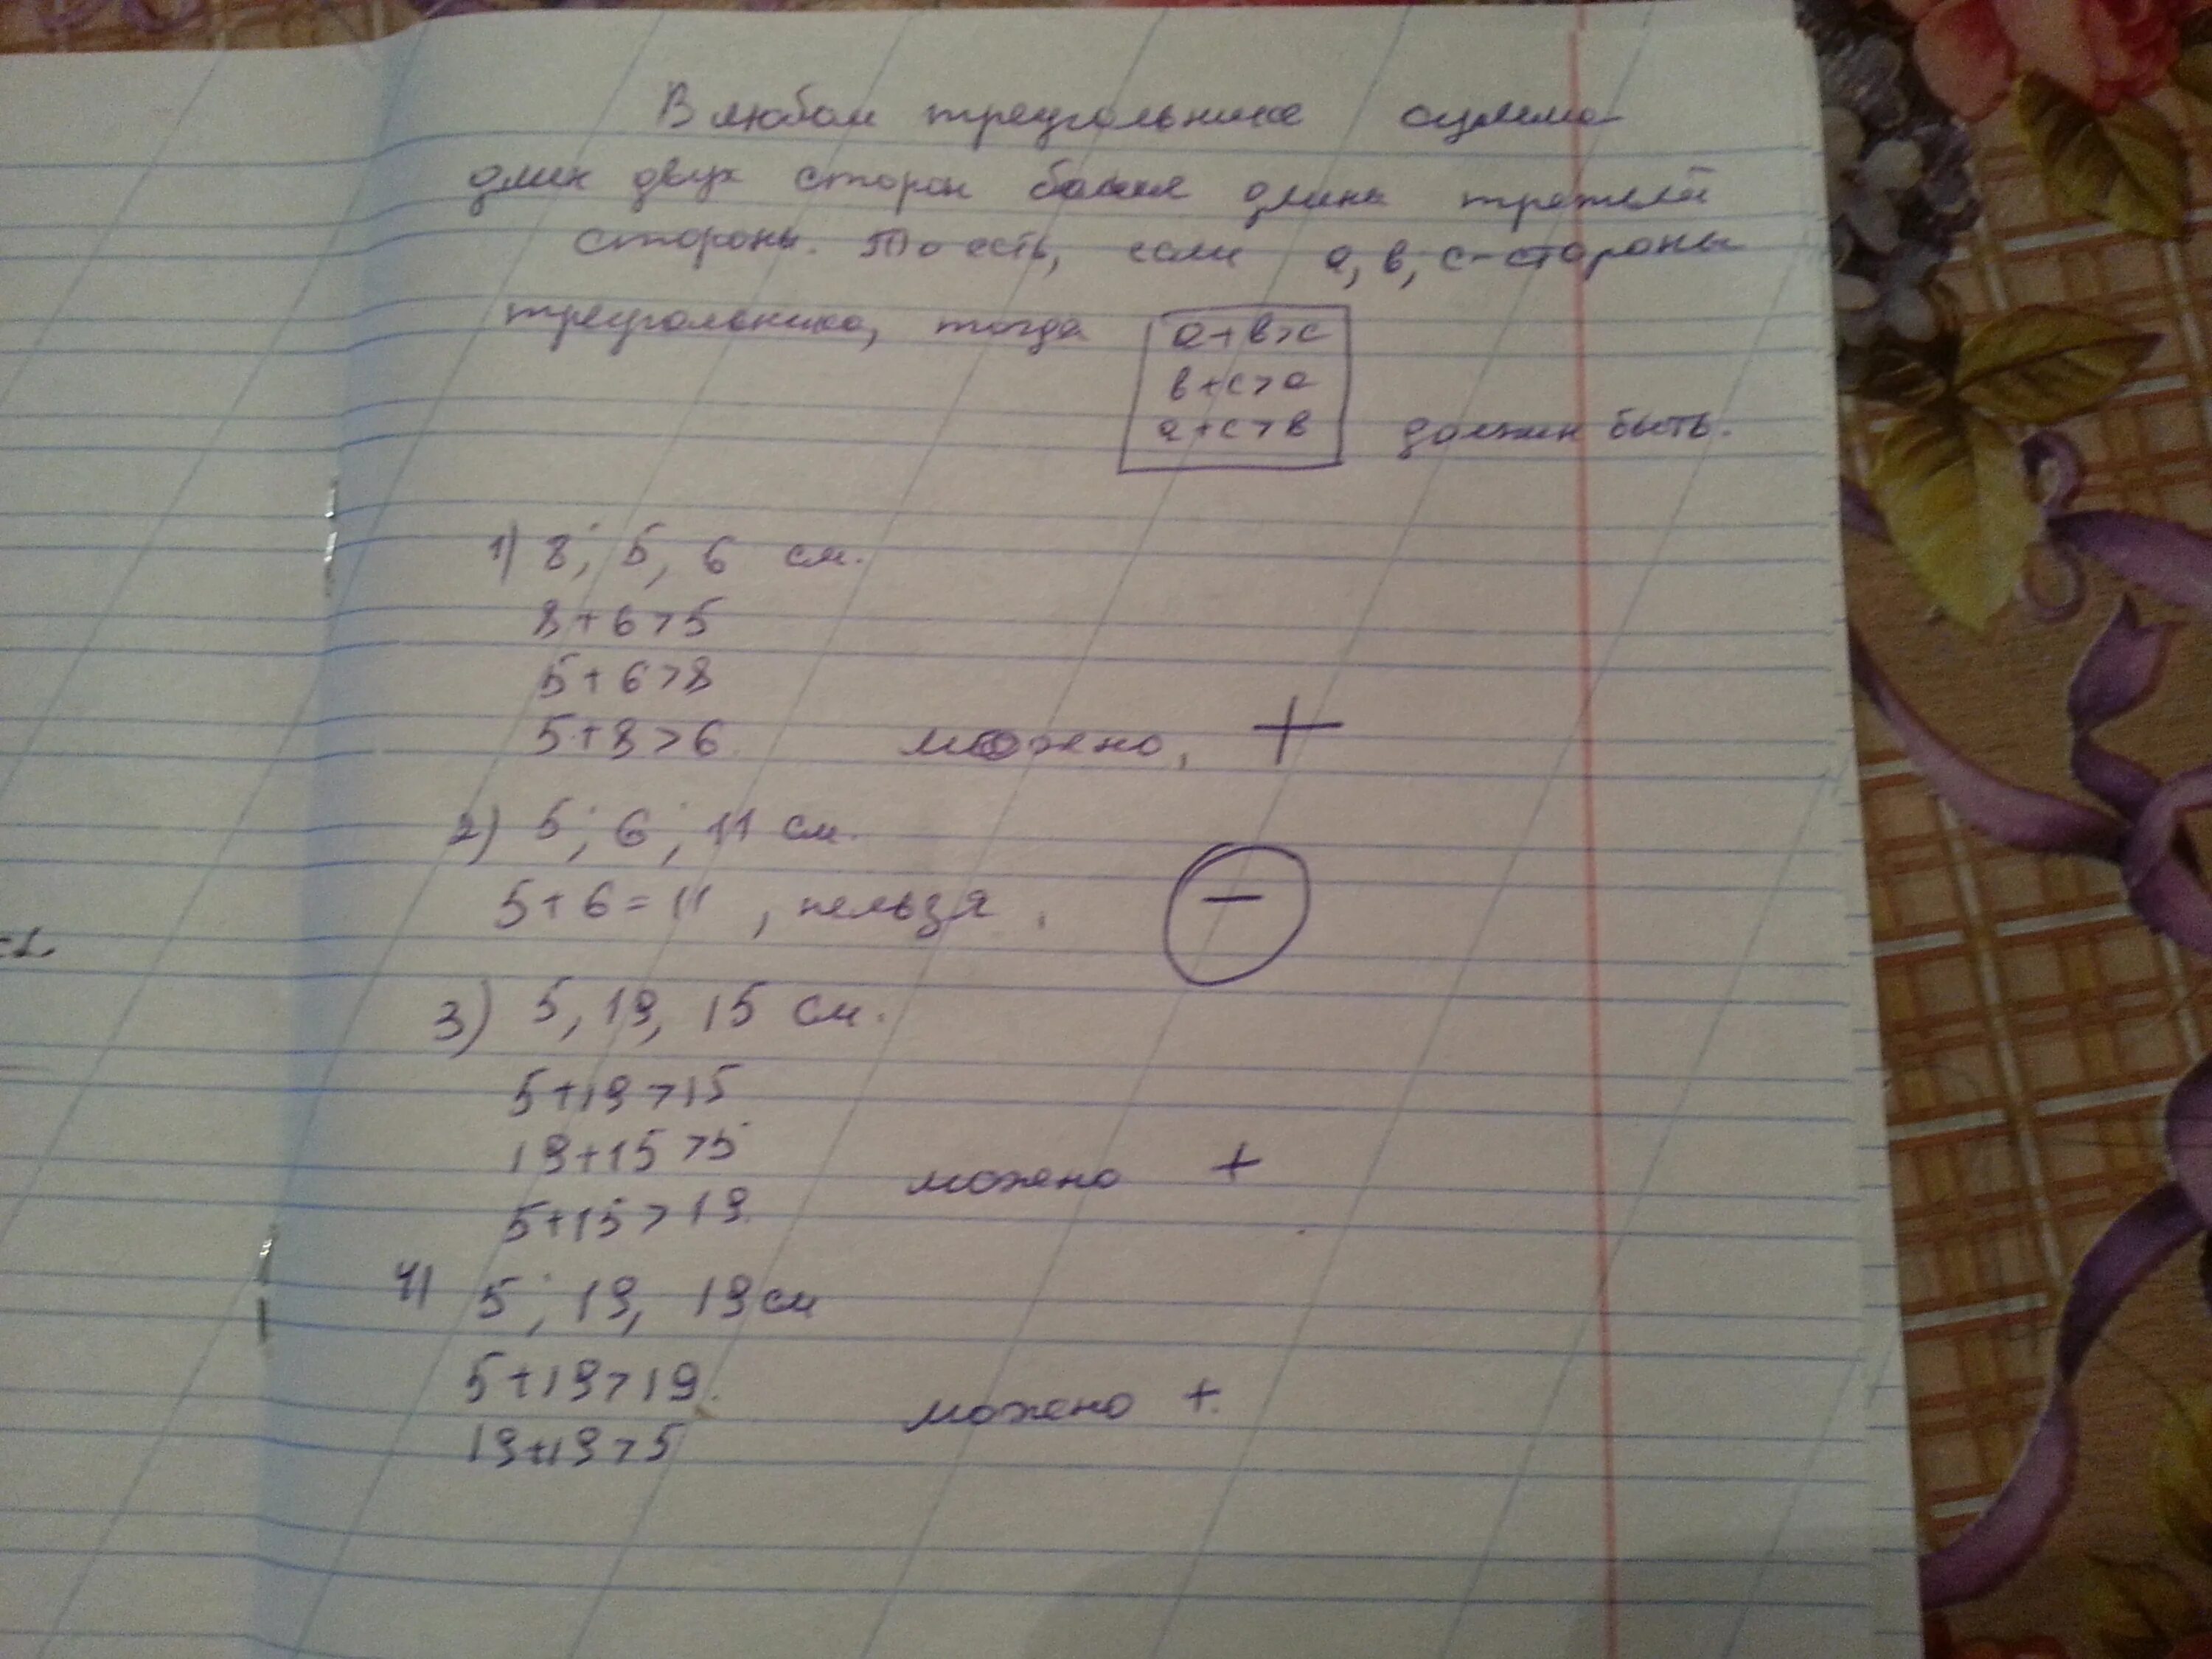 В любом треугольнике сумма
длин двух сторон больше длины третьей
стороны. То есть, если а, в, с-стороны
треугольника, тогда
а+в>с
в+с>а
а+с>в должен быть.
1) 8; 5, 6 см.
8+6>5
5+6>8
5+8>6 можено, +
2) 5; 6; 11 см.
5+6=11, нельзя. –
3) 5, 19, 15 см.
5+19>15
19+15>5
5+15>19. можено +
4) 5; 19, 19 см
5+19>19. можено +.
19+19>5